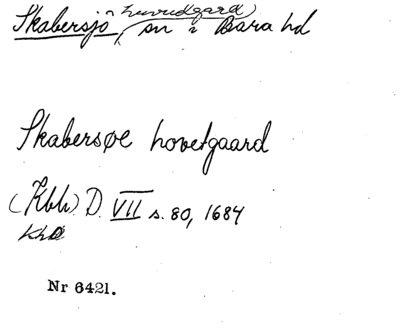 Skabersjö (huvudgård), sn i Bara hd
Skabersøe hovetgaard
(Kbh) D. VII s. 80, 1684
Nr 6421.